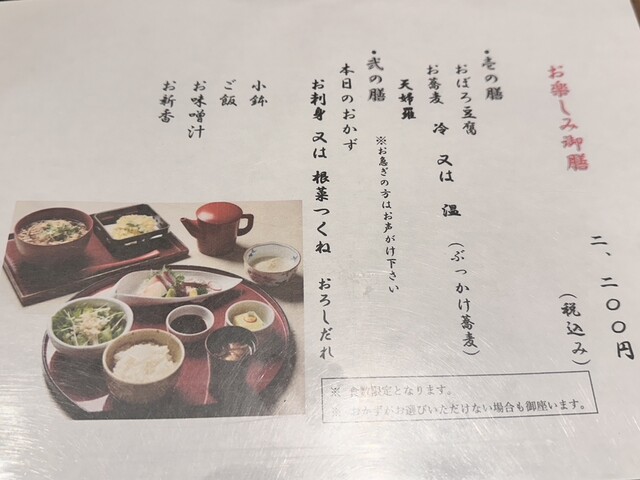 お楽しみ御膳
二、二〇〇円
(税込み)
・壱の膳
おぼろ豆腐
お蕎麦 冷 又は 温 (ぶっかけ蕎麦)
天婦羅
※お急ぎの方はお声がけ下さい
・弐の膳
本日のおかず
お刺身 又は 根菜つくね おろしだれ
小鉢
ご飯
お味噌汁
お新香
※ 食数限定となります。
※ おかずがお選びいただけない場合も御座います。